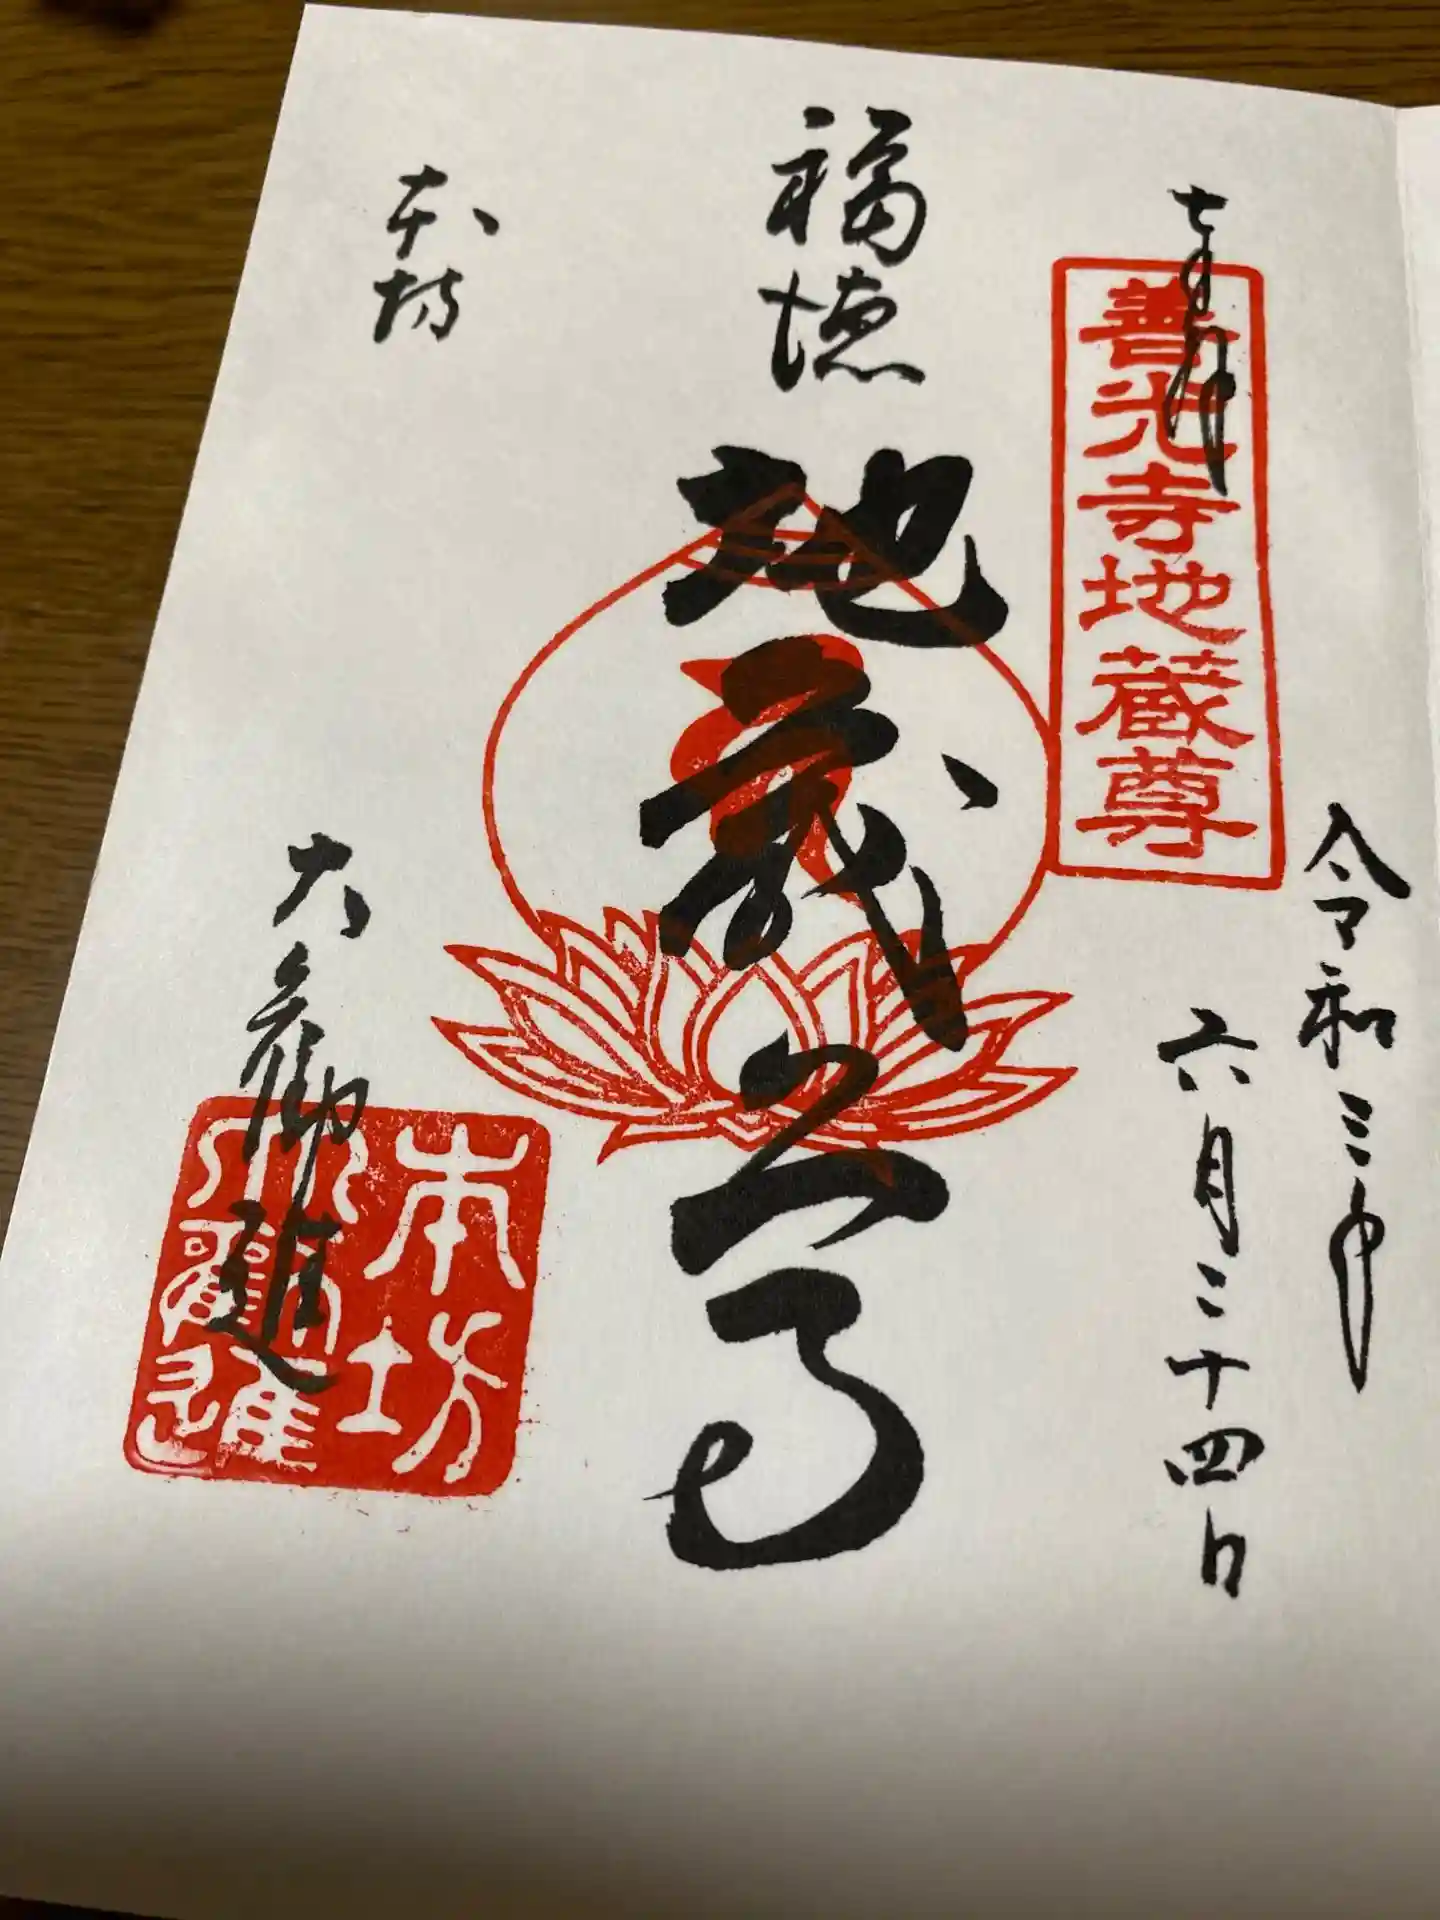 奉拝
善光寺地蔵尊
令和三年
六月二十四日
福徳
地蔵尊
本坊
大勧進
本坊
大勧進